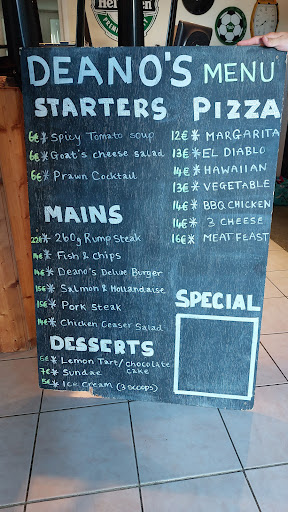 Heineken
PREMIUM
DEANO'S MENU
STARTERS
6€* Spicy Tomato soup
6€* Goat's cheese salad
6€* Prawn Cocktail
MAINS
22€* 260g Rump Steak
14€* Fish & Chips
14€* Deano's Deluxe Burger
15€* Salmon & Hollandaise
15€* Pork steak
14€* Chicken Ceaser Salad
DESSERTS
6€* Lemon Tart/chocolate
cake
7€* Sundae
5€* Ice Cream (3 scoops)
PIZZA
12€* MARGARITA
13€* EL DIABLO
14€* HAWAIIAN
13€* VEGETABLE
14€* BBQ CHICKEN
14€* 3 CHEESE
16€* MEATFEAST
SPECIAL